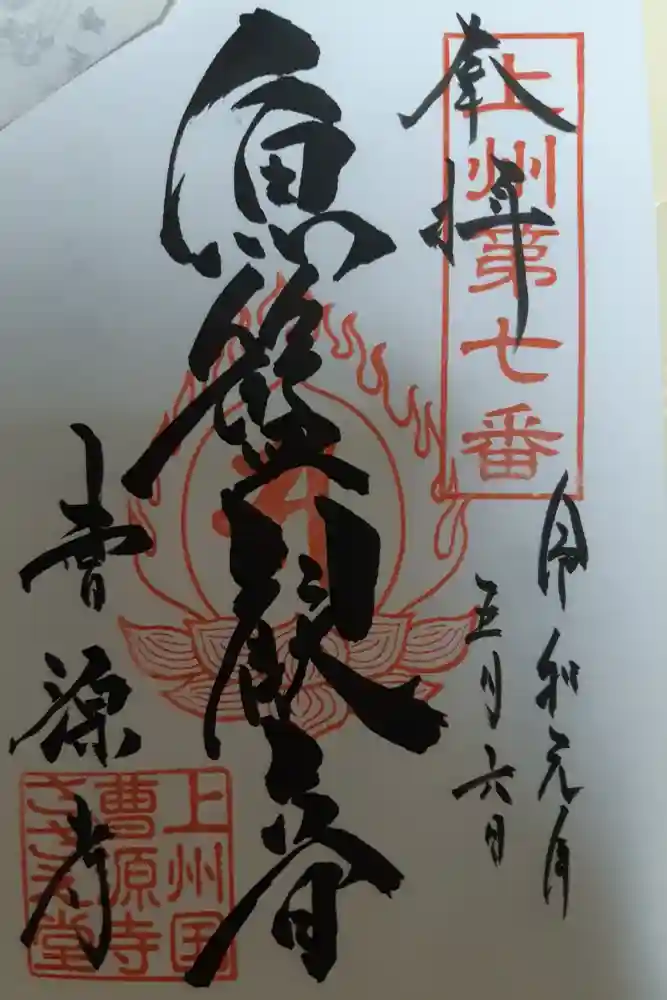 奉拝
上州第七番
令和元年
五月六日
魚籃観音
曹源寺
上州国
曹源寺
さざえ堂